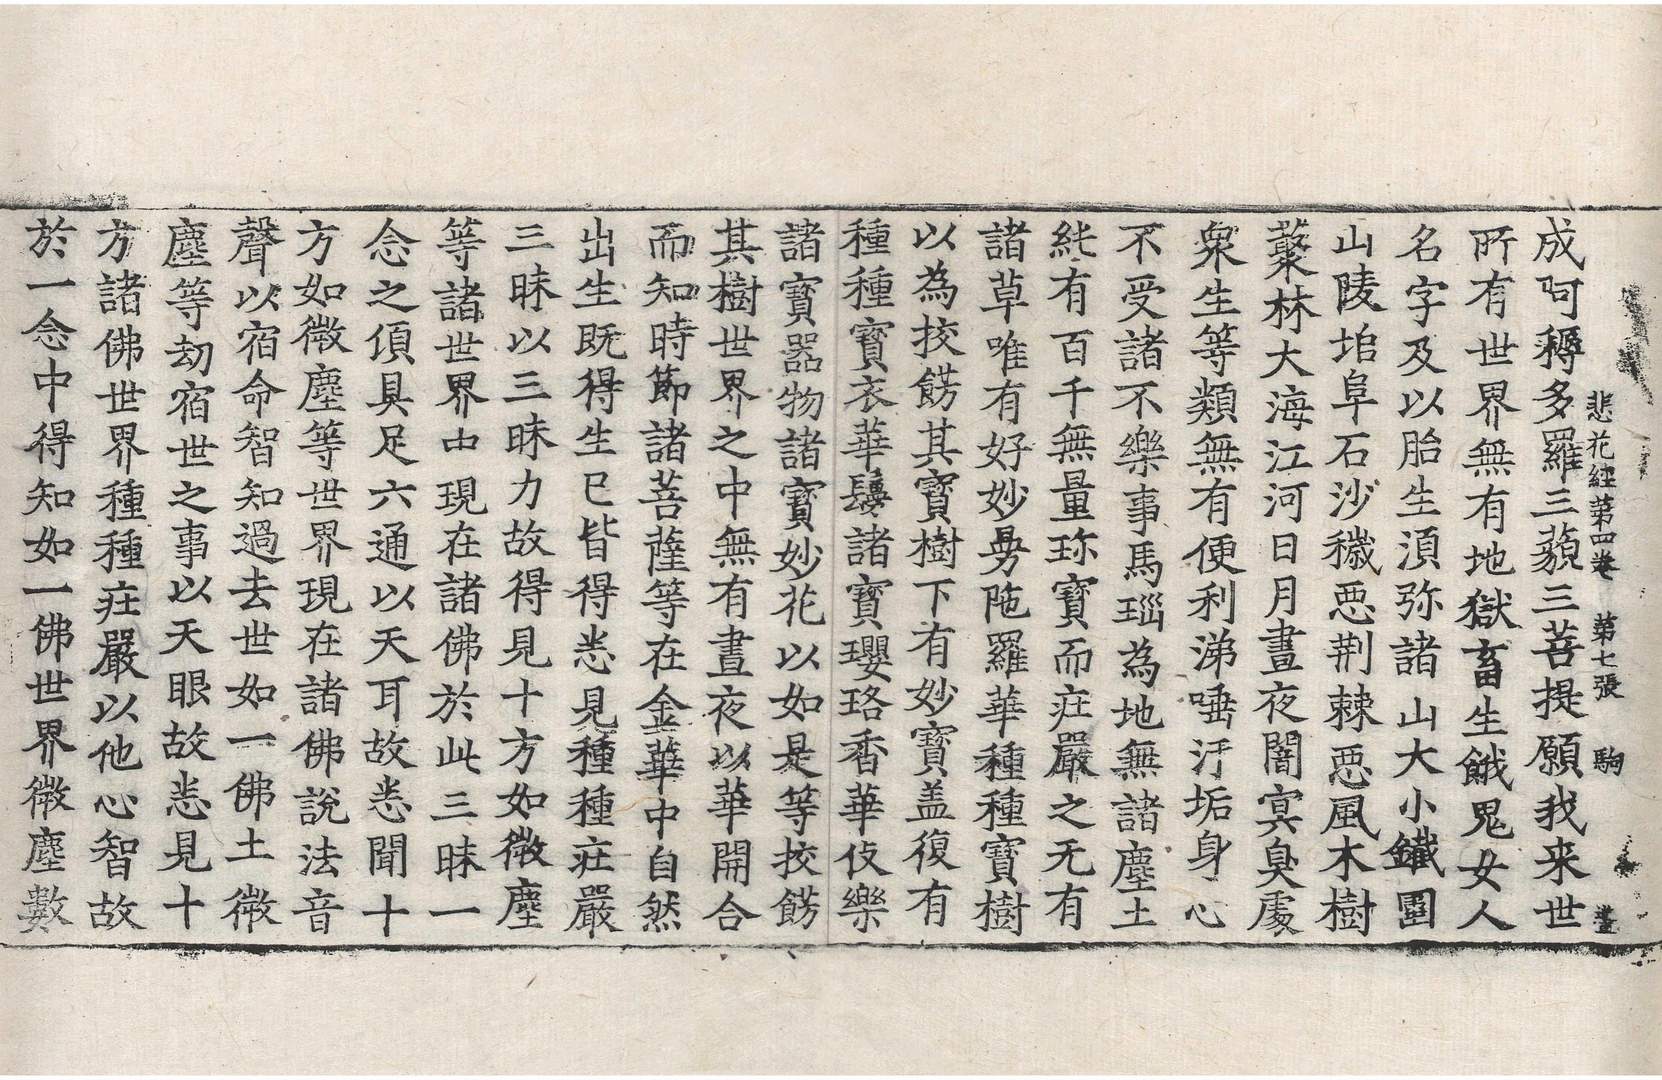 悲花経第四卷 第七張 駒
成呵耨多羅三藐三菩提願我来世
所有世界無有地獄畜生餓鬼女人
名字及以胎生湏弥諸山大小鐵圍
山陵塠阜石沙穢惡荆棘惡風木樹
藂林大海江河日月晝夜闇冥臭處
衆生等類無有便利涕唾汙垢身心
不受諸不樂事馬瑙為地無諸塵土
純有百千無量珎寶而庄嚴之无有
諸草唯有好妙曼陁羅華種種寶樹
以為挍餝其寶樹下有妙寶盖復有
種種寶衣華鬘諸寶瓔珞香華伎樂
諸寶器物諸寶妙花以如是等挍餝
其樹世界之中無有晝夜以華開合
而知時節諸菩薩等在金華中自然
出生既得生已皆得悉見種種庄嚴
三昧以三昧力故得見十方如微塵
等諸世界中現在諸佛於此三昧一
念之頃具足六通以天耳故悉聞十
方如微塵等世界現在諸佛說法音
聲以宿命智知過去世如一佛土微
塵等劫宿世之事以天眼故悉見十
方諸佛世界種種庄嚴以他心智故
於一念中得知如一佛世界微塵數